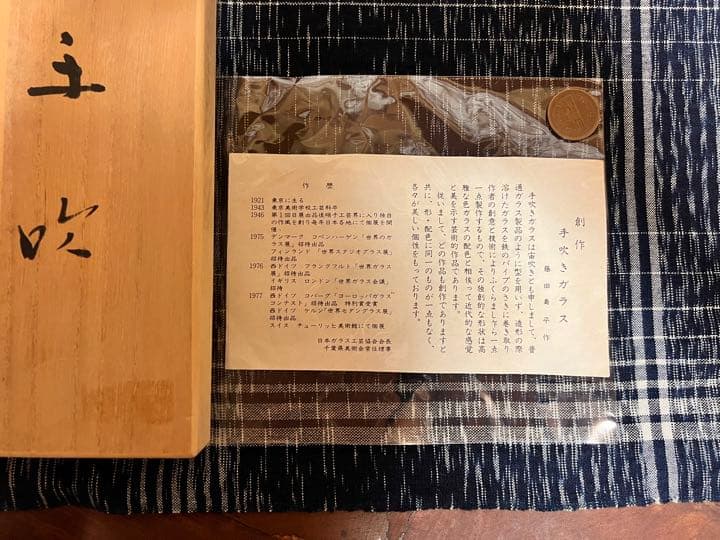 手吹
創作
手吹きガラス
藤田喬平作
手吹きガラスは宙吹きとも申しまして、普
通ガラス製品のように型を用いず、造形の際
溶けたガラスを鉄のパイプのさきに巻き取り
作者の創意と技術によりふくらまし乍ら一点
一点製作するもので、その独創的な形状は高
雅な色ガラスの配色と相俟って近代的な感覚
と美を示す芸術的作品であります。
従いまして、どの作品も創作でありますと
共に、形・配色に同一のものが一点もなく、
各々が美しい個性をもっております。
作 歴
1921 東京に生る
1943 東京美術学校工芸科卒
1946 第1回日展出品後順子工芸界に入り独自
の作風を創り毎年日本各地にて個展を開
催
1975 デンマーク コペンハーゲン「世界のガ
ラス展」招待出品
フィンランド「世界スタジオグラス展」
招待出品
1976 西ドイツ フランクフルト「世界ガラス
展」招待出品
イギリス ロンドン「世界ガラス会議」
招待
1977 西ドイツ コバーグ「ヨーロッパガラス
コンテスト」招待出品 特別賞受賞
西ドイツ ケルン「世界モダングラス展」
招待出品
スイス チューリッヒ美術館にて個展
日本ガラス工芸協会会長
千葉県美術会常任理事